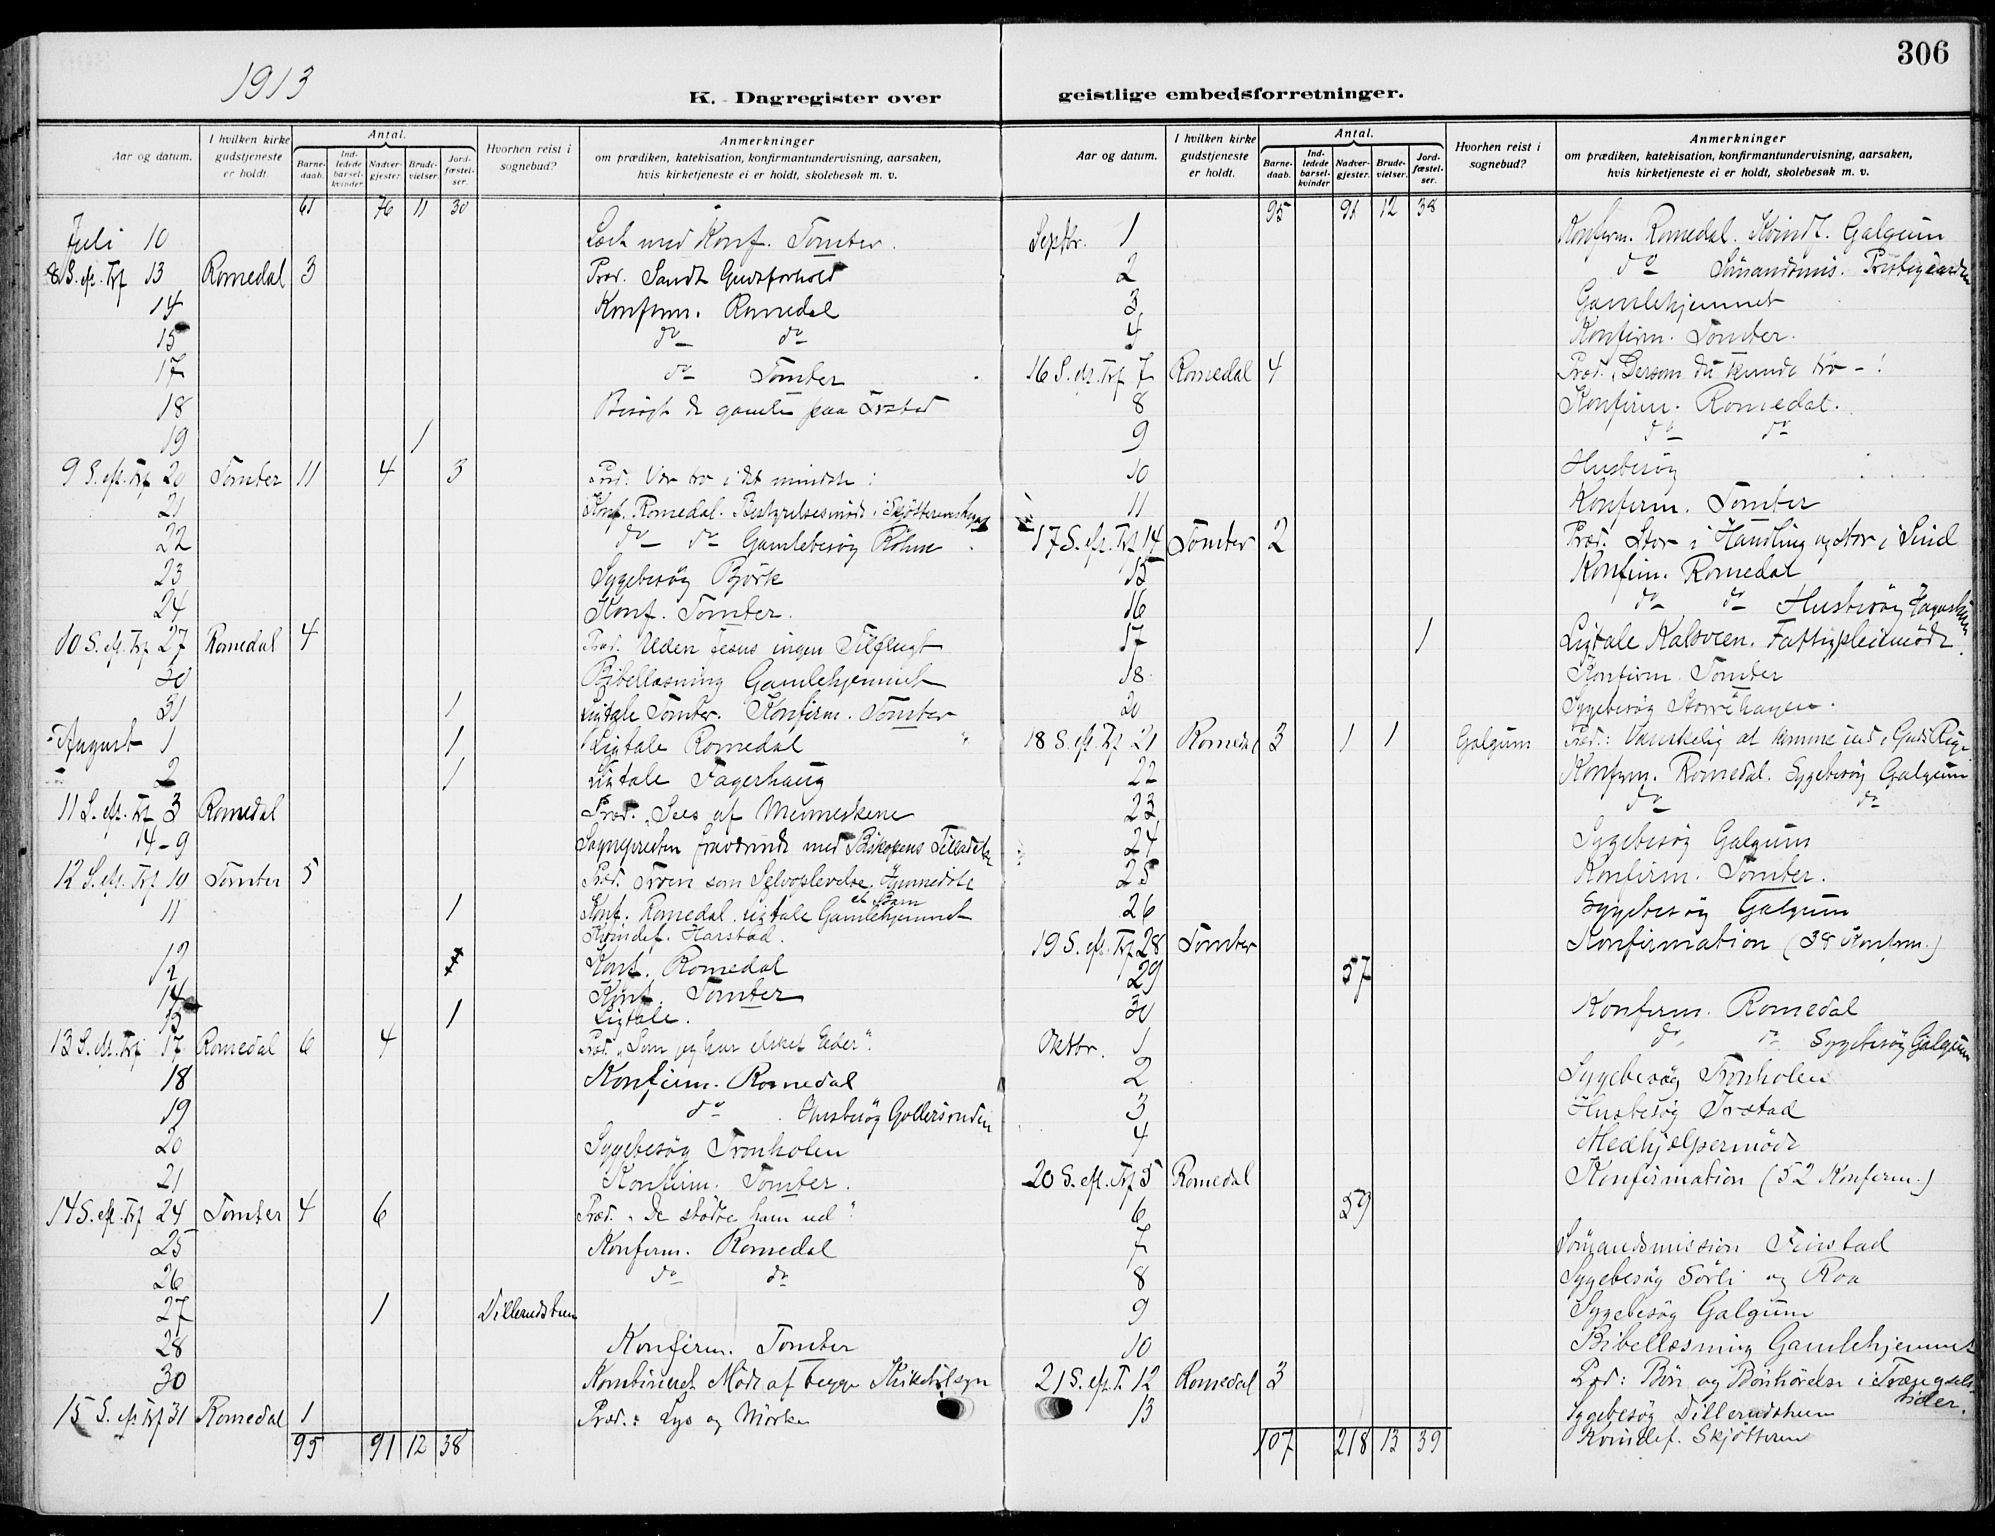 306
1913
K. Dagregister over geistlige embedsforretninger.
Aar og datum.
I hvilken kirke gudstjeneste er holdt.
Antal.
Barne-daab.
Ind-ledede barsel-kvinder
Nadver-gjester.
Brude-vielser.
Jord-fæstel-ser.
Hvorhen reist i sognebud?
Anmerkninger
om prædiken, katekisation, konfirmantundervisning, aarsaken,
hvis kirketjeneste ei er holdt, skolebesøk m. v.
61 76 11 30
Juli 10 Læst med Konf. Tomter.
8 S. eft. Trf 13 Romedal 3 Præd. Sandt Gudsforhold
14 Konfirm. Romedal
15 do do
17 do Tomter
18 Besøgt de gamle paa
19 1
9 S. eft. Trf 20 Tomter 11 4 3 Præd. Vær tro i det mindste!
21 Konf. Romedal. Bestyrelsesmøde i
22 do do Gamlebesøg
23 Sygebesøg Björk
24 Konf. Tomter.
10 S. eft. Trf 27 Romedal 4 Præd. Uden Jesus ingen Tilflugt
30 Bibellæsning Gamlehjemmet
31 1 Ligtale Tomter. Konfirm. Tomter
August 1 1 Ligtale Romedal
2 1 Ligtale Fagerhaug
11 S. eft. Trf 3 Romedal Præd. "Sees af Menneskene
4-9 Sognepresten fraværende med Biskopens Tilladelse
12 S. eft. Trf 10 Tomter 5 Præd. Troen som Selvoplevelse.
11 1 Konf. Romedal. Ligtale et Barn Gamlehjemmet
Kvindef. Harstad.
12 Konf. Romedal
14 Konf. Tomter
15 1 Ligtale.
13 S. eft. Trf 17 Romedal 6 4 Præd. "Som jeg har elsket Eder".
18 Konfirm. Romedal
19 do Husbesøg
20 Sygebesøg Tronholen
21 Konfirm. Tomter.
14 S. eft. Trf 24 Tomter 4 6 Præd. "De stødte ham ud".
25 Konfirm. Romedal
26 do do
27 1 Dillerudstuen
28 Konfirm. Tomter
30 Kombineret Møde af begge
15 S. eft Trf 31 Romedal 1 Præd.: Lys og Mørke
95 91 12 38
Aar og datum.
I hvilken kirke gudstjeneste er holdt.
Antal.
Barne-daab.
Ind-ledede barsel-kvinder
Nadver-gjester.
Brude-vielser.
Jord-fæstel-ser.
Hvorhen reist i sognebud?
Anmerkninger
om prædiken, katekisation, konfirmantundervisning, aarsaken,
hvis kirketjeneste ei er holdt, skolebesøk m. v.
95 91 12 38
Septbr. 1 Konfirm. Romedal. Kvindf. Galgum
2 do Sømandsmis. Prestegaarden
3 Gamlehjemmet
4 Konfirm. Tomter.
16 S. eft. Trf 7 Romedal 4 Præd. "Dersom du kunde tro -!
8 Konfirm. Romedal.
9 do do
10 Husbesøg
11 Konfirm. Tomter
17 S. eft. Trf 14 Tomter 2 Præd. Stor i Handling og stor i Sind
15 Konfirm. Romedal
16 do do Husbesøg
17 1 Ligtale Kalsveen. Fattigpleiemøde.
18 Konfirm Tomter
20 Sygebesøg Storrehagen.
18 S. eft. Trf 21 Romedal 3 1 1 Galgum Præd.: Vanskelig at komme ind i Guds Rige
22 Konfirm. Romedal. Sygebesøg Galgum
23 do do
24 Sygebesøg Galgum
25 Konfirm. Tomter.
26 Sygebesøg Galgum
19 S. eft. Trf 28 Tomter Konfirmation (38 Konfirm.)
29 57
30 Konfirm. Romedal
Oktbr. 1 do do Sygebesøg Galgum
2 Sygebesøg Tronholen
3 Husbesøg
4 Medhjælpermøde
20 S. eft. Trf 5 Romedal Konfirmation (52 Konfirm.)
6 59
7 Sømandsmission Finstad
8 Sygebesøg Sørli og Roa
9 Sygebesøg Galgum
10 Bibellæsning Gamlehjemmet
21 S. eft. T. 12 Romedal 3 Præd: Bøn og Bønhørelse i Trængsels-tider.
13 Sygebesøg Dillerudstuen
Kvindef. Skjøtteren
107 218 13 39